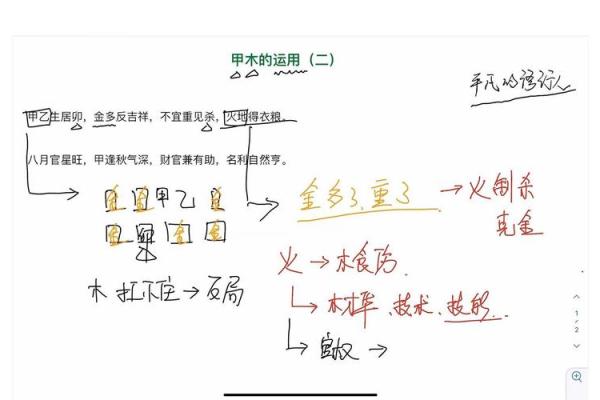 甲木的运用（二）
平凡的语行人
甲乙生居卯，金多反吉祥，不宜重见杀，火地得衣粮。
八月官星旺，甲逢秋气深，财官兼有助，名利自然亨。
金 金 甲 乙 金
金 卯 金 金
金多了、重了 → 火制杀
克金
木扛不住 → 反局
火 → 木食伤.
才华、技术、技能...
官杀 →
1
/
2